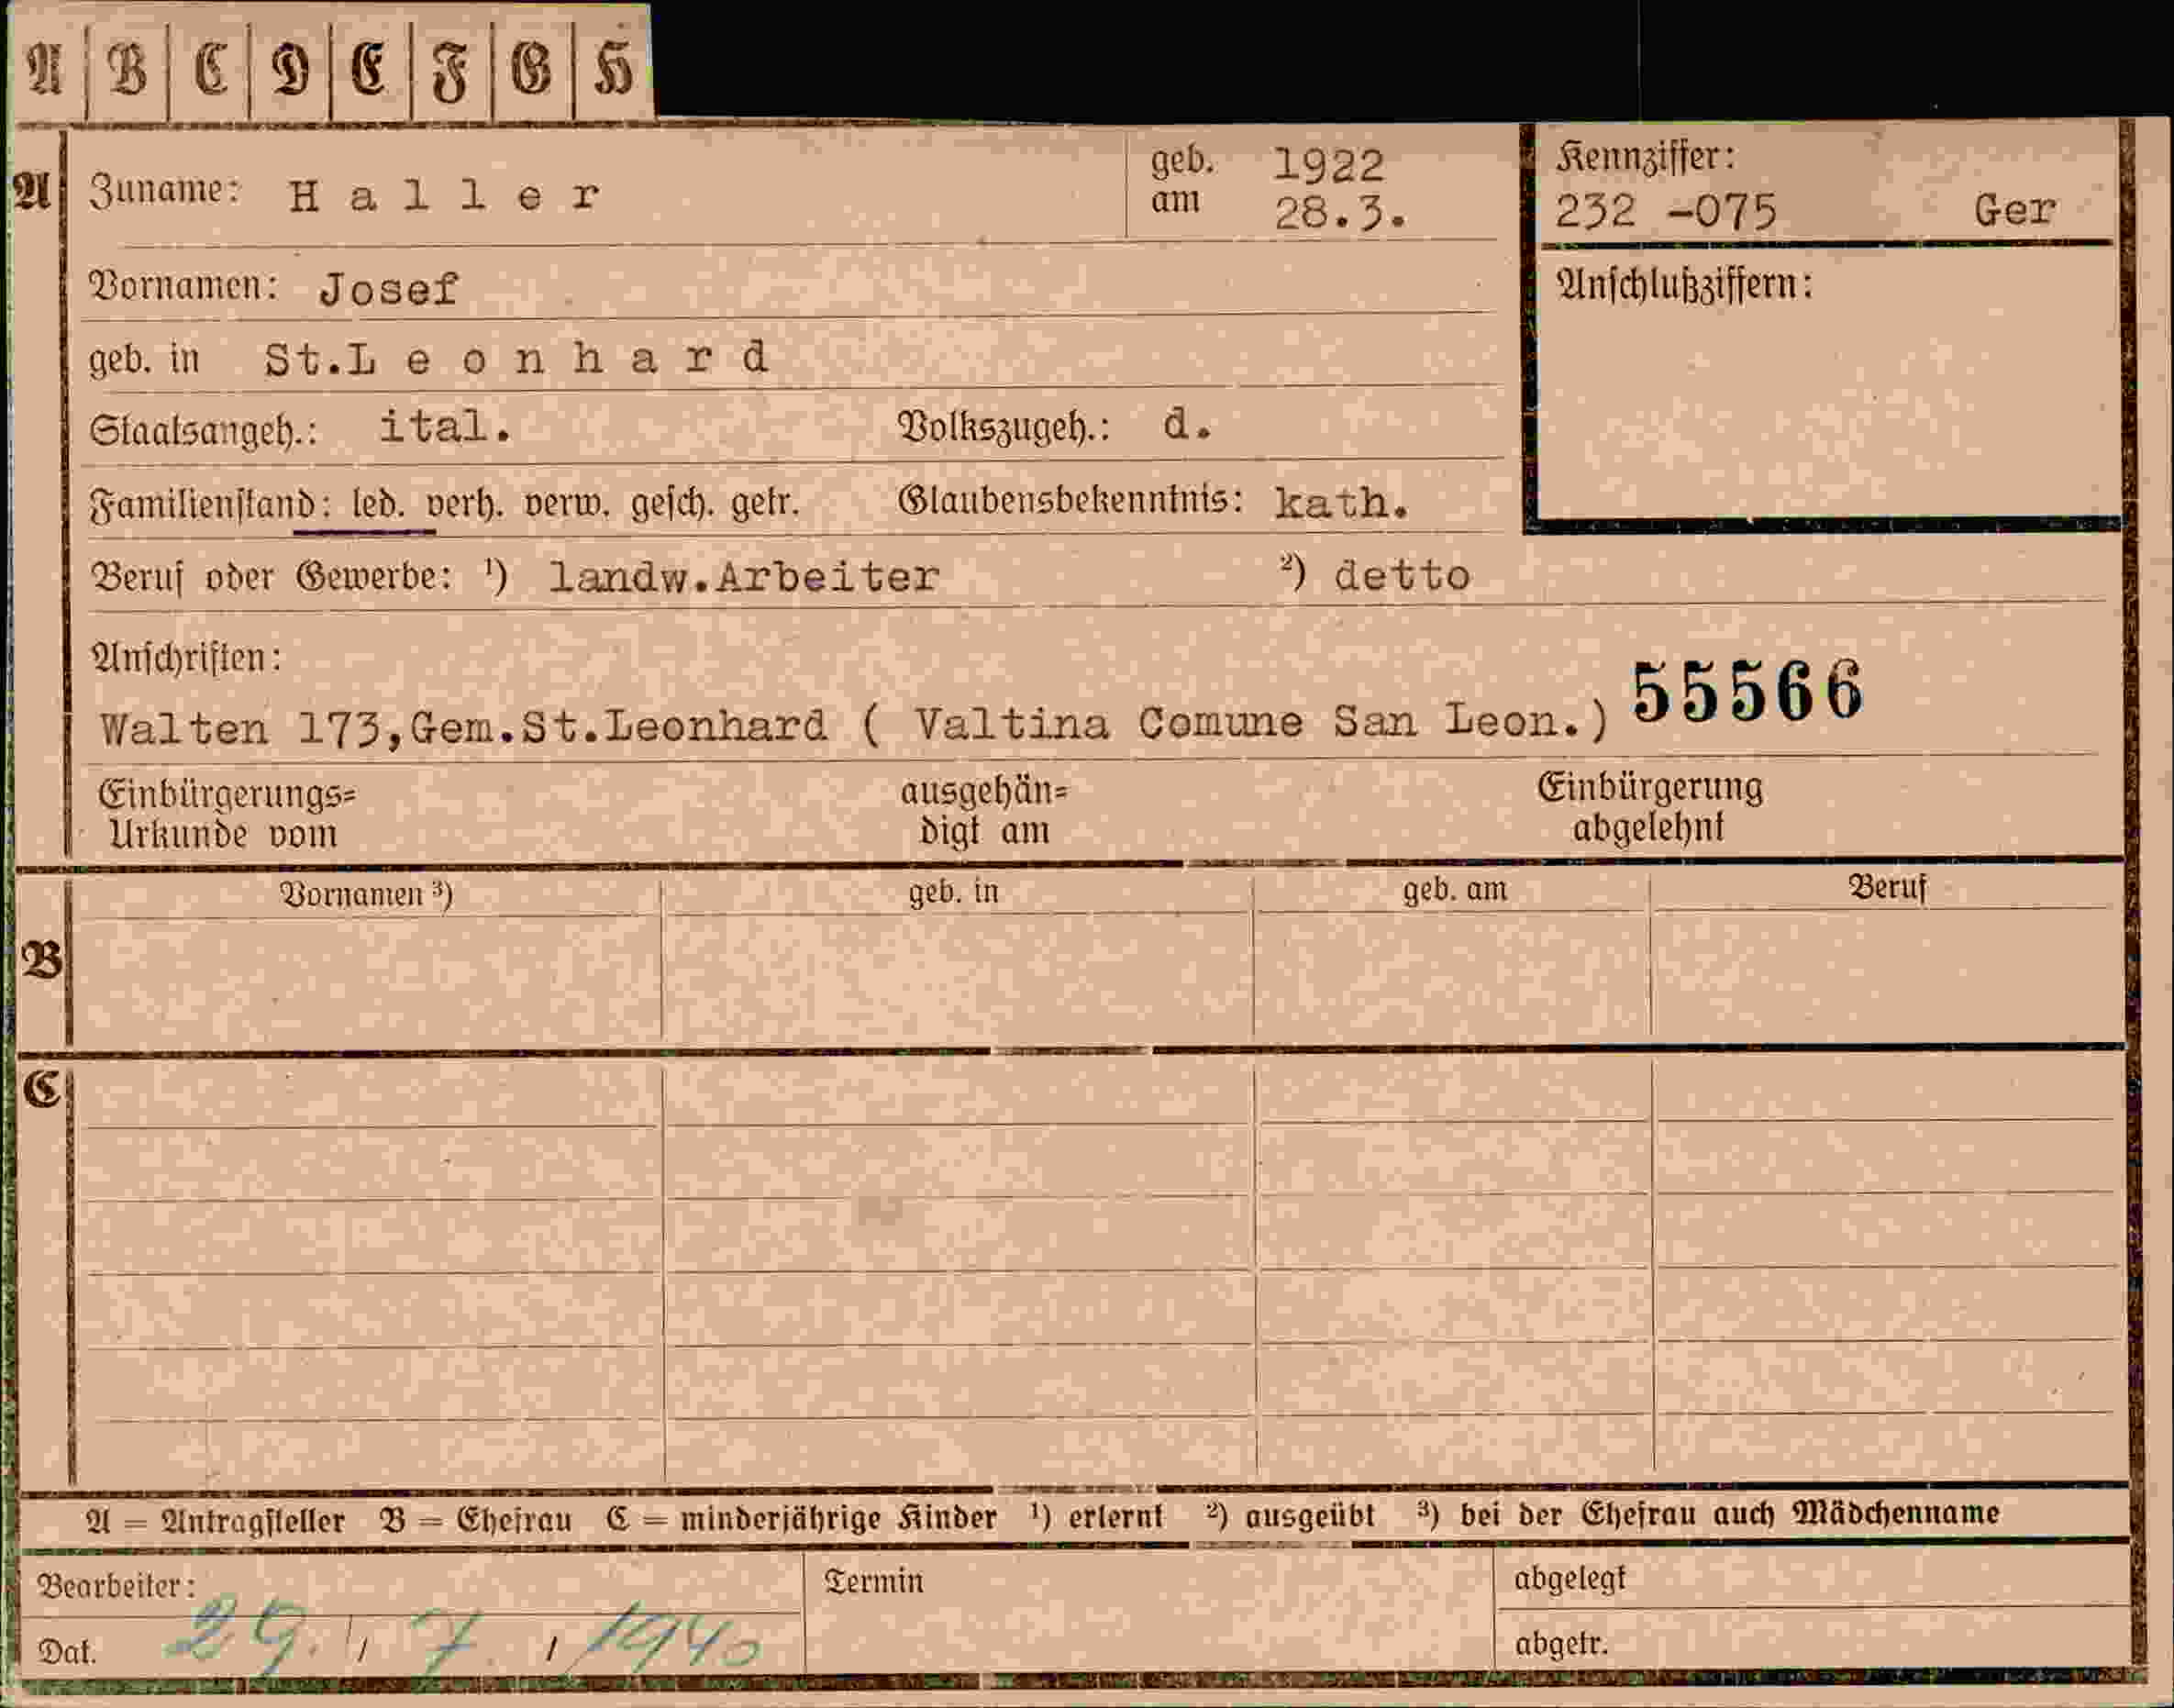 A B C D E F G H
A Zuname: H a l l e r geb. am 1922 28.3. Kennziffer: 232 -075 Ger
Vornamen: Josef Anschlußziffern:
geb. in St.L e o n h a r d
Staatsangeh.: ital. Volkszugeh.: d.
Familienstand: led. verh. verw. gesch. getr. Glaubensbekenntnis: kath.
Beruf oder Gewerbe: ¹) landw.Arbeiter ²) detto
Anschriften:
Walten 173,Gem.St.Leonhard ( Valtina Comune San Leon.) 55566
Einbürgerungs= ausgehän= Einbürgerung
Urkunde vom digt am abgelehnt
Vornamen ³) geb. in geb. am Beruf
B
C
A = Antragsteller B = Ehefrau C = minderjährige Kinder ¹) erlernt ²) ausgeübt ³) bei der Ehefrau auch Mädchenname
Bearbeiter: Termin abgelegt
Dat. 29. / 7. / 1940 abgetr.